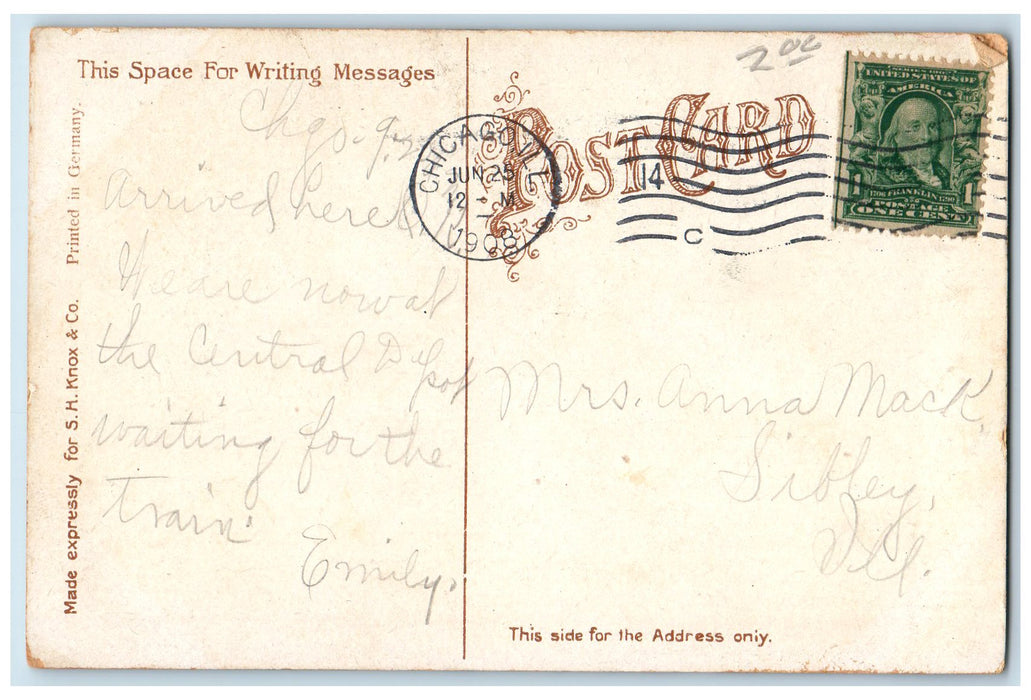 This Space For Writing Messages
Printed in Germany.
Made expressly for S. H. Knox & Co.
POST CARD
2 00
CHICAGO, ILL.
JUN 25
12 - M
1908
14
C
SERIES 1902
UNITED STATES OF AMERICA
1 FRANKLIN 1
POSTAGE
ONE CENT
Chgo.
Arrived here
We are now at
the Central Depot
waiting for the
train.
Emily.
Mrs. Anna Mack,
Sibley,
Ill.
This side for the Address only.